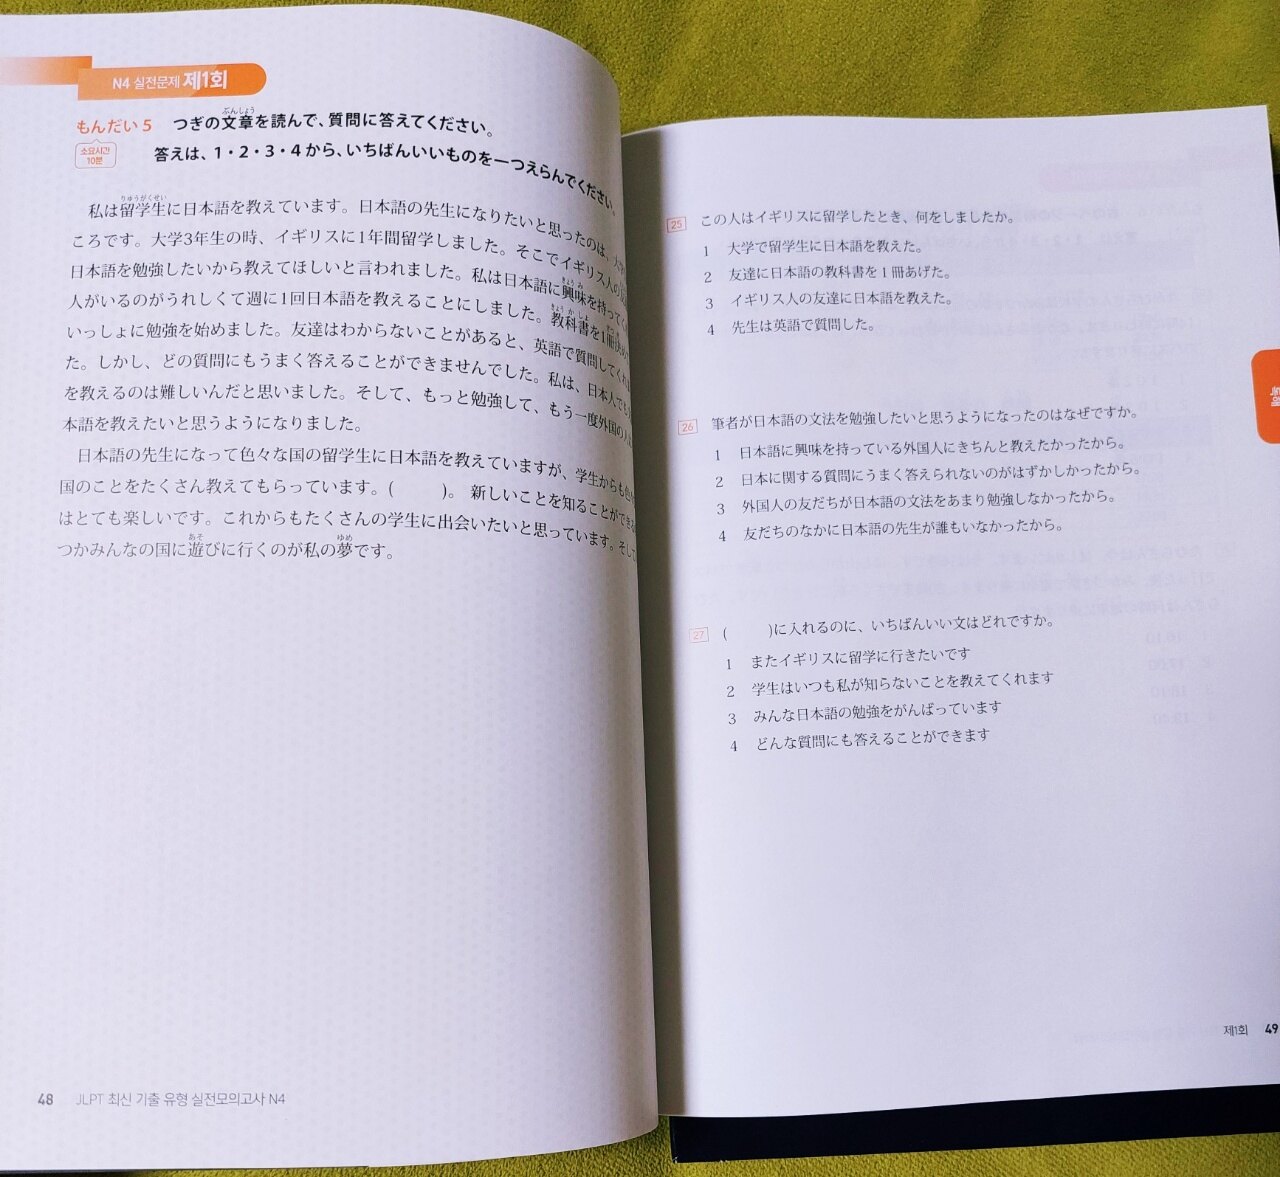 N4 실전문제 제1회
もんだい 5 つぎの文章を読んで、質問に答えてください。
ぶんしょう
소요시간
10분
答えは、1・2・3・4 から、いちばんいいものを一つえらんでください。
りゅうがくせい
私は留学生に日本語を教えています。日本語の先生になりたいと思ったのは、大学
ころです。大学3年生の時、イギリスに1年間留学しました。そこでイギリス人の
日本語を勉強したいから教えてほしいと言われました。私は日本語に興味を持って
きょうみ
人がいるのがうれしくて週に1回日本語を教えることにしました。教科書を1冊決め
きょうかしょ
いっしょに勉強を始めました。友達はわからないことがあると、英語で質問してくれ
た。しかし、どの質問にもうまく答えることができませんでした。私は、日本人でも
を教えるのは難しいんだと思いました。そして、もっと勉強して、もう一度外国の人
本語を教えたいと思うようになりました。
日本語の先生になって色々な国の留学生に日本語を教えていますが、学生からも
国のことをたくさん教えてもらっています。( )。 新しいことを知ることができる
はとても楽しいです。これからもたくさんの学生に出会いたいと思っています。そして
あそ ゆめ
つかみんなの国に遊びに行くのが私の夢です。
48 JLPT 최신 기출 유형 실전모의고사 N4
25 この人はイギリスに留学したとき、何をしましたか。
1 大学で留学生に日本語を教えた。
2 友達に日本語の教科書を1冊あげた。
3 イギリス人の友達に日本語を教えた。
4 先生は英語で質問した。
26 筆者が日本語の文法を勉強したいと思うようになったのはなぜですか。
1 日本語に興味を持っている外国人にきちんと教えたかったから。
2 日本に関する質問にうまく答えられないのがはずかしかったから。
3 外国人の友だちが日本語の文法をあまり勉強しなかったから。
4 友だちのなかに日本語の先生が誰もいなかったから。
27 ( )に入れるのに、いちばんいい文はどれですか。
1 またイギリスに留学に行きたいです
2 学生はいつも私が知らないことを教えてくれます
3 みんな日本語の勉強をがんばっています
4 どんな質問にも答えることができます
제1회 49